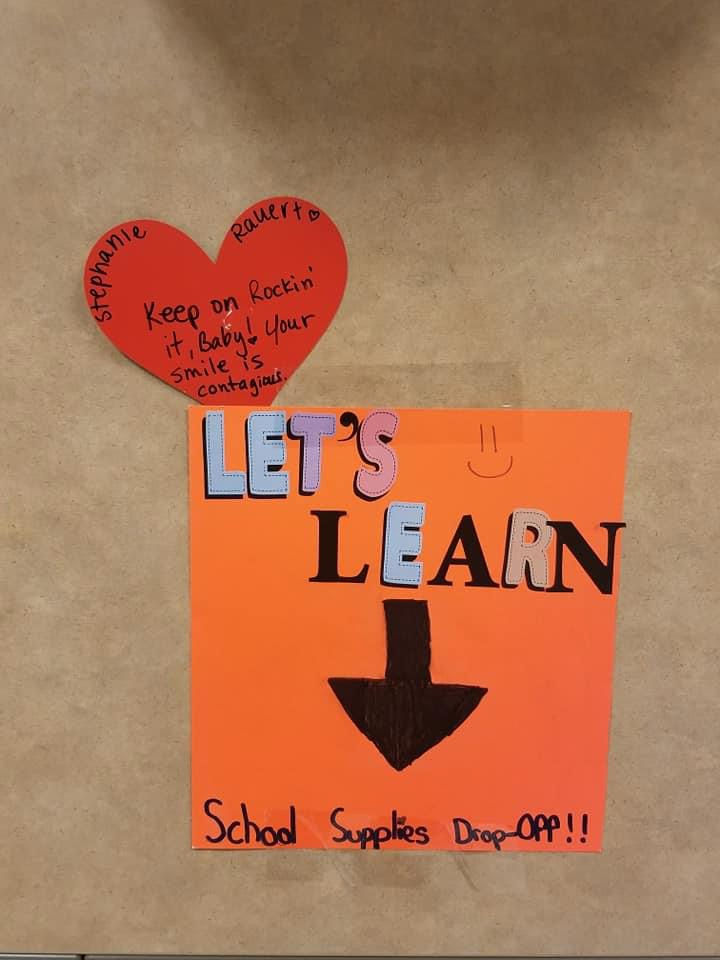 Stephanie Rauert
Keep on Rockin'
it, Baby! Your
smile is
contagious.
LET'S
LEARN
School Supplies Drop-OFF!!